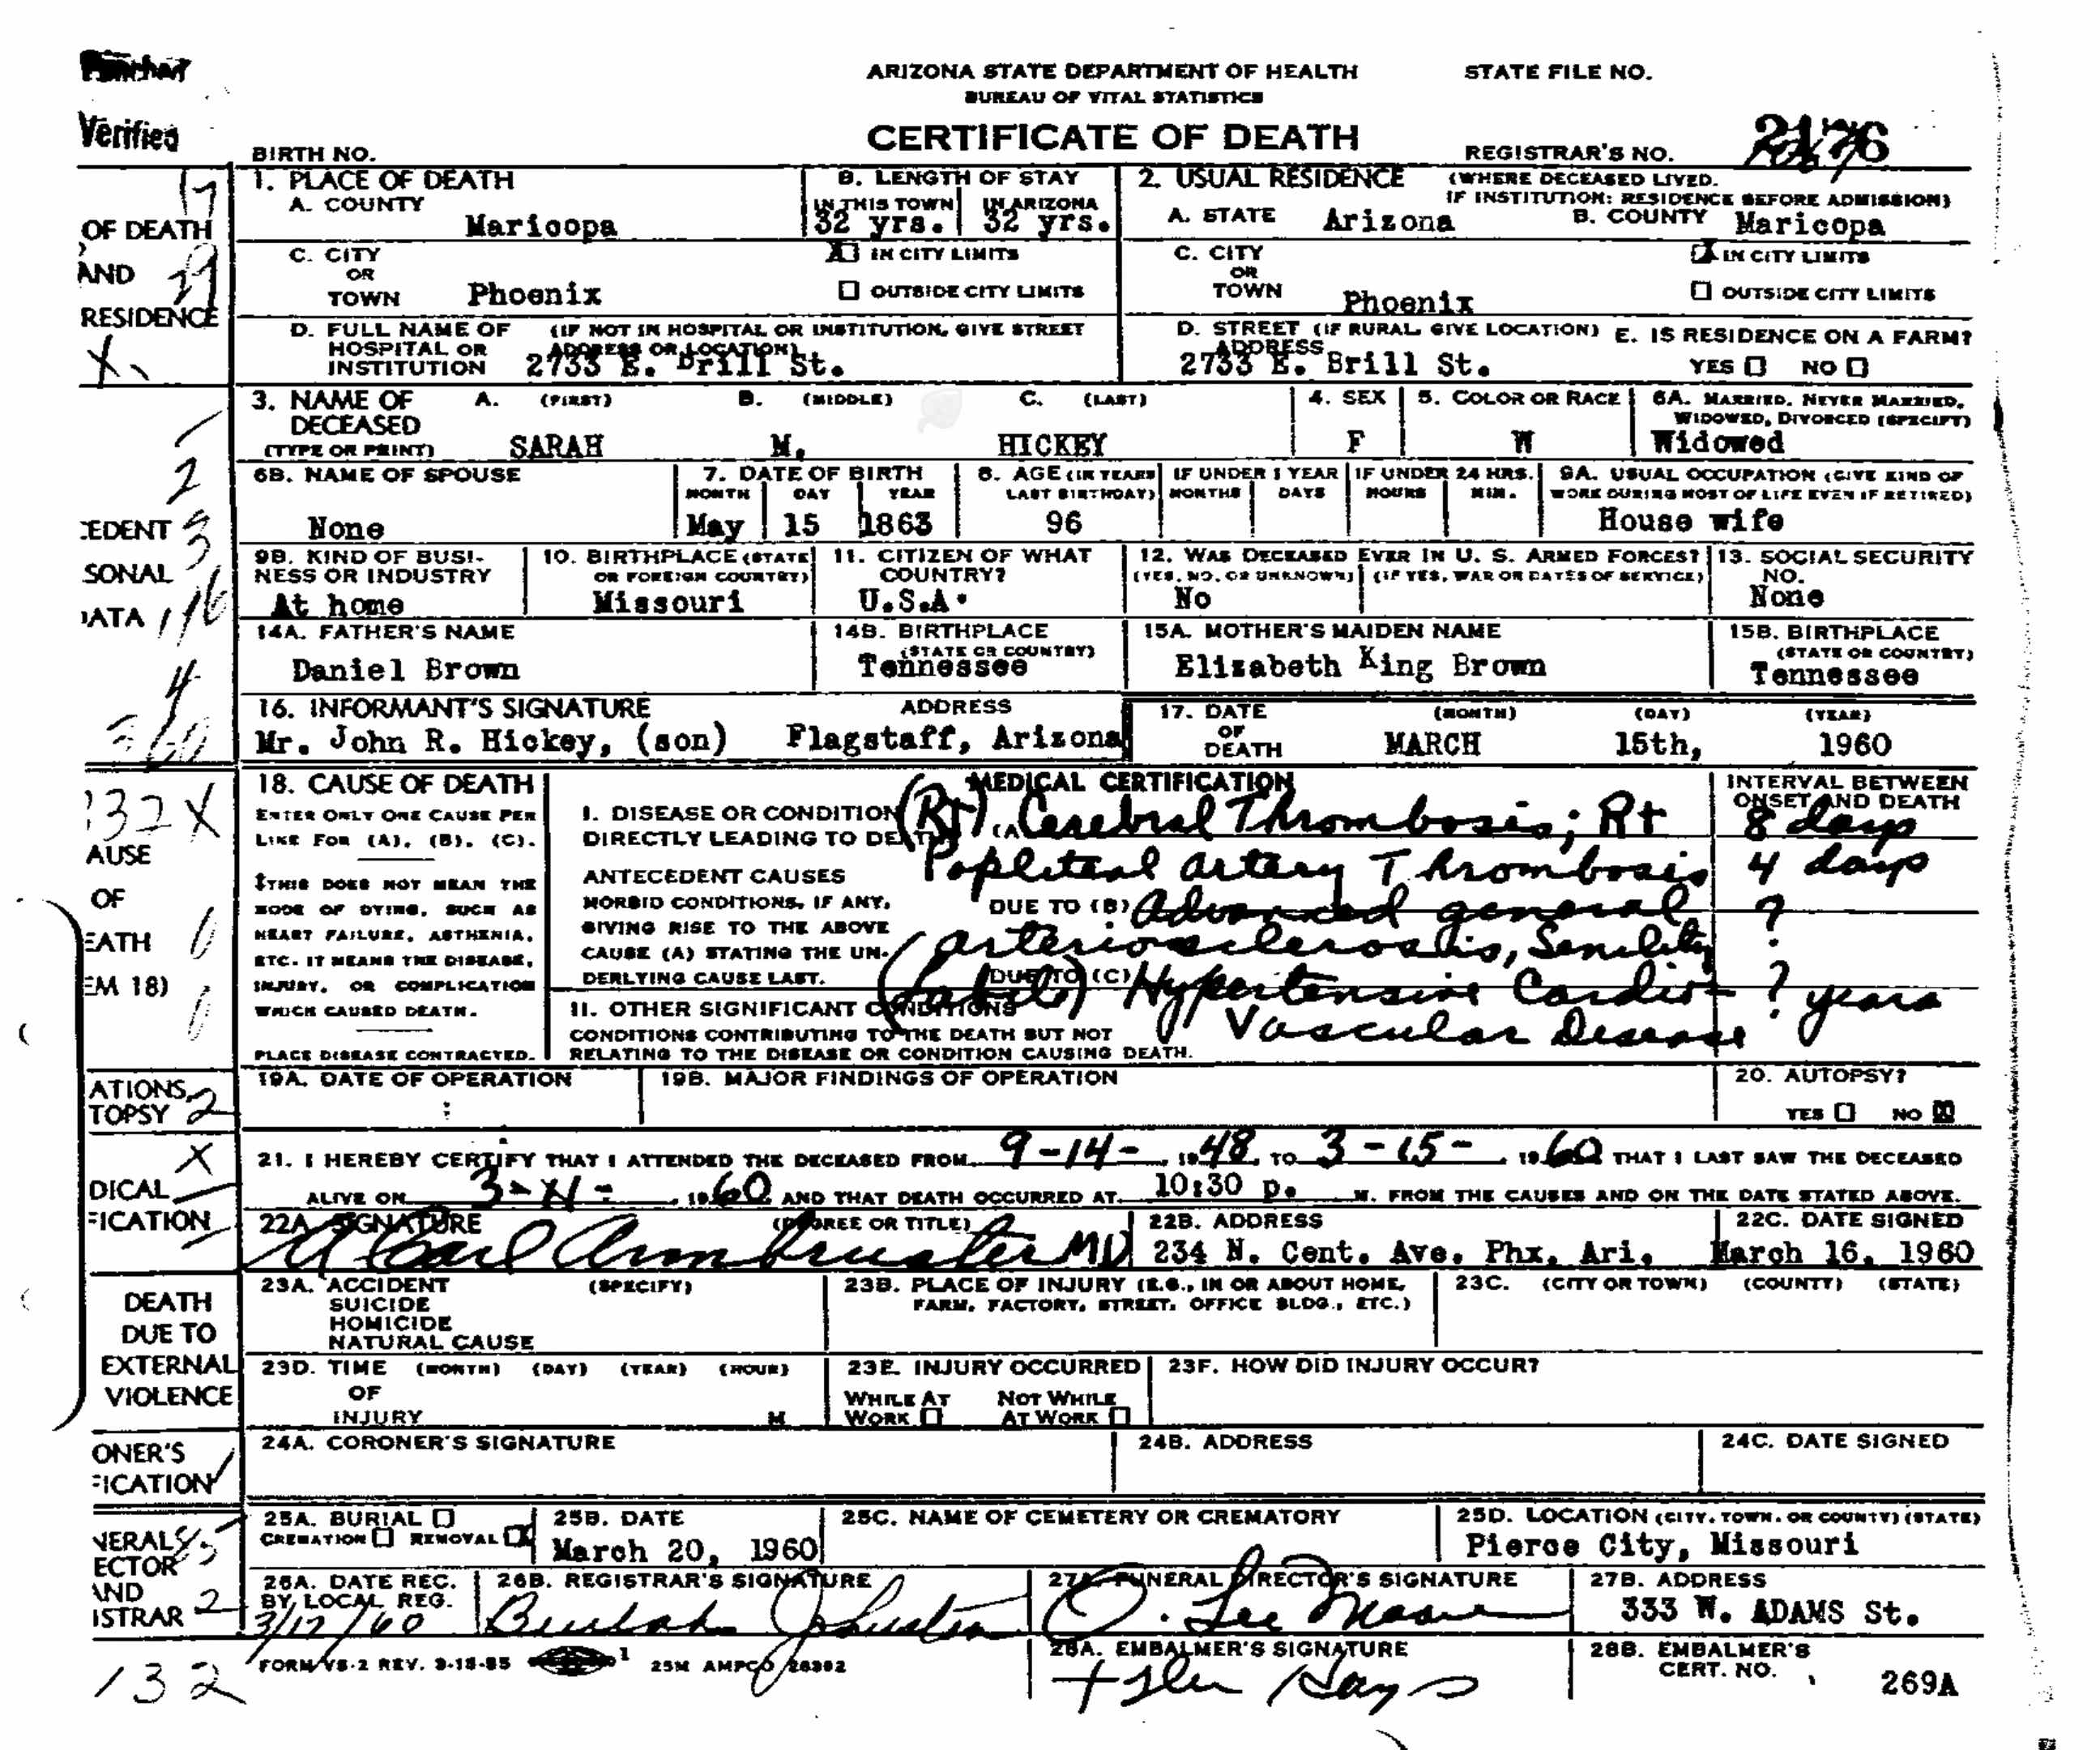 ARIZONA STATE DEPARTMENT OF HEALTH STATE FILE NO.
BUREAU OF VITAL STATISTICS
Verified
CERTIFICATE OF DEATH
BIRTH NO. REGISTRAR'S NO.
1. PLACE OF DEATH B. LENGTH OF STAY 2. USUAL RESIDENCE (WHERE DECEASED LIVED.
IF INSTITUTION: RESIDENCE BEFORE ADMISSION)
A. COUNTY Maricopa IN THIS TOWN 32 yrs. IN ARIZONA 32 yrs. A. STATE Arizona B. COUNTY Maricopa
OF DEATH
AND
RESIDENCE
C. CITY OR TOWN Phoenix X IN CITY LIMITS C. CITY OR TOWN Phoenix X IN CITY LIMITS
OUTSIDE CITY LIMITS OUTSIDE CITY LIMITS
D. FULL NAME OF HOSPITAL OR INSTITUTION (IF NOT IN HOSPITAL OR INSTITUTION, GIVE STREET ADDRESS OR LOCATION)
2733 E. Brill St.
D. STREET ADDRESS (IF RURAL, GIVE LOCATION) E. IS RESIDENCE ON A FARM?
2733 E. Brill St. YES NO
3. NAME OF DECEASED (TYPE OR PRINT) A. (FIRST) B. (MIDDLE) C. (LAST) 4. SEX 5. COLOR OR RACE 6A. MARRIED, NEVER MARRIED, WIDOWED, DIVORCED (SPECIFY)
SARAH M. HICKEY F W Widowed
6B. NAME OF SPOUSE 7. DATE OF BIRTH 8. AGE (IN YEARS LAST BIRTHDAY) IF UNDER 1 YEAR IF UNDER 24 HRS. 9A. USUAL OCCUPATION (GIVE KIND OF WORK DURING MOST OF LIFE EVEN IF RETIRED)
MONTH DAY YEAR MONTHS DAYS HOURS MIN.
None May 15 1863 96 House wife
CEDENT
SONAL
DATA
9B. KIND OF BUSINESS OR INDUSTRY 10. BIRTHPLACE (STATE OR FOREIGN COUNTRY) 11. CITIZEN OF WHAT COUNTRY? 12. WAS DECEASED EVER IN U. S. ARMED FORCES? 13. SOCIAL SECURITY NO.
(YES, NO, OR UNKNOWN) (IF YES, WAR OR DATES OF SERVICE)
At home Missouri U.S.A. No None
14A. FATHER'S NAME 14B. BIRTHPLACE (STATE OR COUNTRY) 15A. MOTHER'S MAIDEN NAME 15B. BIRTHPLACE (STATE OR COUNTRY)
Daniel Brown Tennessee Elizabeth King Brown Tennessee
16. INFORMANT'S SIGNATURE ADDRESS 17. DATE OF DEATH (MONTH) (DAY) (YEAR)
Mr. John R. Hickey, (son) Flagstaff, Arizona MARCH 15th, 1960
18. CAUSE OF DEATH MEDICAL CERTIFICATION INTERVAL BETWEEN ONSET AND DEATH
ENTER ONLY ONE CAUSE PER LINE FOR (A), (B), (C).
‡THIS DOES NOT MEAN THE MODE OF DYING, SUCH AS HEART FAILURE, ASTHENIA, ETC. IT MEANS THE DISEASE, INJURY, OR COMPLICATION WHICH CAUSED DEATH.
PLACE DISEASE CONTRACTED.
AUSE
OF
EATH
EM 18)
I. DISEASE OR CONDITION DIRECTLY LEADING TO DEATH (Rt) (A) Cerebral Thrombosis; Rt 8 days
Popliteal artery Thrombosis 4 days
ANTECEDENT CAUSES
MORBID CONDITIONS, IF ANY, GIVING RISE TO THE ABOVE CAUSE (A) STATING THE UNDERLYING CAUSE LAST.
DUE TO (B) Advanced general ?
arteriosclerosis, Senility
DUE TO (C) (Labile) Hypertensive Cardio- ? years
Vascular Disease
II. OTHER SIGNIFICANT CONDITIONS
CONDITIONS CONTRIBUTING TO THE DEATH BUT NOT RELATING TO THE DISEASE OR CONDITION CAUSING DEATH.
ATIONS,
TOPSY 2
19A. DATE OF OPERATION 19B. MAJOR FINDINGS OF OPERATION 20. AUTOPSY?
YES NO X
DICAL
FICATION
21. I HEREBY CERTIFY THAT I ATTENDED THE DECEASED FROM 9-14-, 1948, TO 3-15-, 1960 THAT I LAST SAW THE DECEASED
ALIVE ON , 1960 AND THAT DEATH OCCURRED AT 10:30 p. M. FROM THE CAUSES AND ON THE DATE STATED ABOVE.
22A. SIGNATURE (DEGREE OR TITLE) 22B. ADDRESS 22C. DATE SIGNED
A Carl Armbruster MD 234 N. Cent. Ave. Phx. Ari. March 16, 1960
DEATH
DUE TO
EXTERNAL
VIOLENCE
23A. ACCIDENT (SPECIFY) 23B. PLACE OF INJURY (E.G., IN OR ABOUT HOME, FARM, FACTORY, STREET, OFFICE BLDG., ETC.) 23C. (CITY OR TOWN) (COUNTY) (STATE)
SUICIDE
HOMICIDE
NATURAL CAUSE
23D. TIME OF INJURY (MONTH) (DAY) (YEAR) (HOUR) M 23E. INJURY OCCURRED 23F. HOW DID INJURY OCCUR?
WHILE AT WORK NOT WHILE AT WORK
ONER'S
FICATION
24A. CORONER'S SIGNATURE 24B. ADDRESS 24C. DATE SIGNED
NERAL
ECTOR
AND
ISTRAR 2
25A. BURIAL CREMATION REMOVAL X 25B. DATE 25C. NAME OF CEMETERY OR CREMATORY 25D. LOCATION (CITY, TOWN, OR COUNTY) (STATE)
March 20, 1960 Pierce City, Missouri
26A. DATE REC. BY LOCAL REG. 26B. REGISTRAR'S SIGNATURE 27A. FUNERAL DIRECTOR'S SIGNATURE 27B. ADDRESS
3/17/60 Beulah Johnston O. Lee Moore 333 W. ADAMS St.
28A. EMBALMER'S SIGNATURE 28B. EMBALMER'S CERT. NO.
269A
FORM VS-2 REV. 25M AMPCO
132